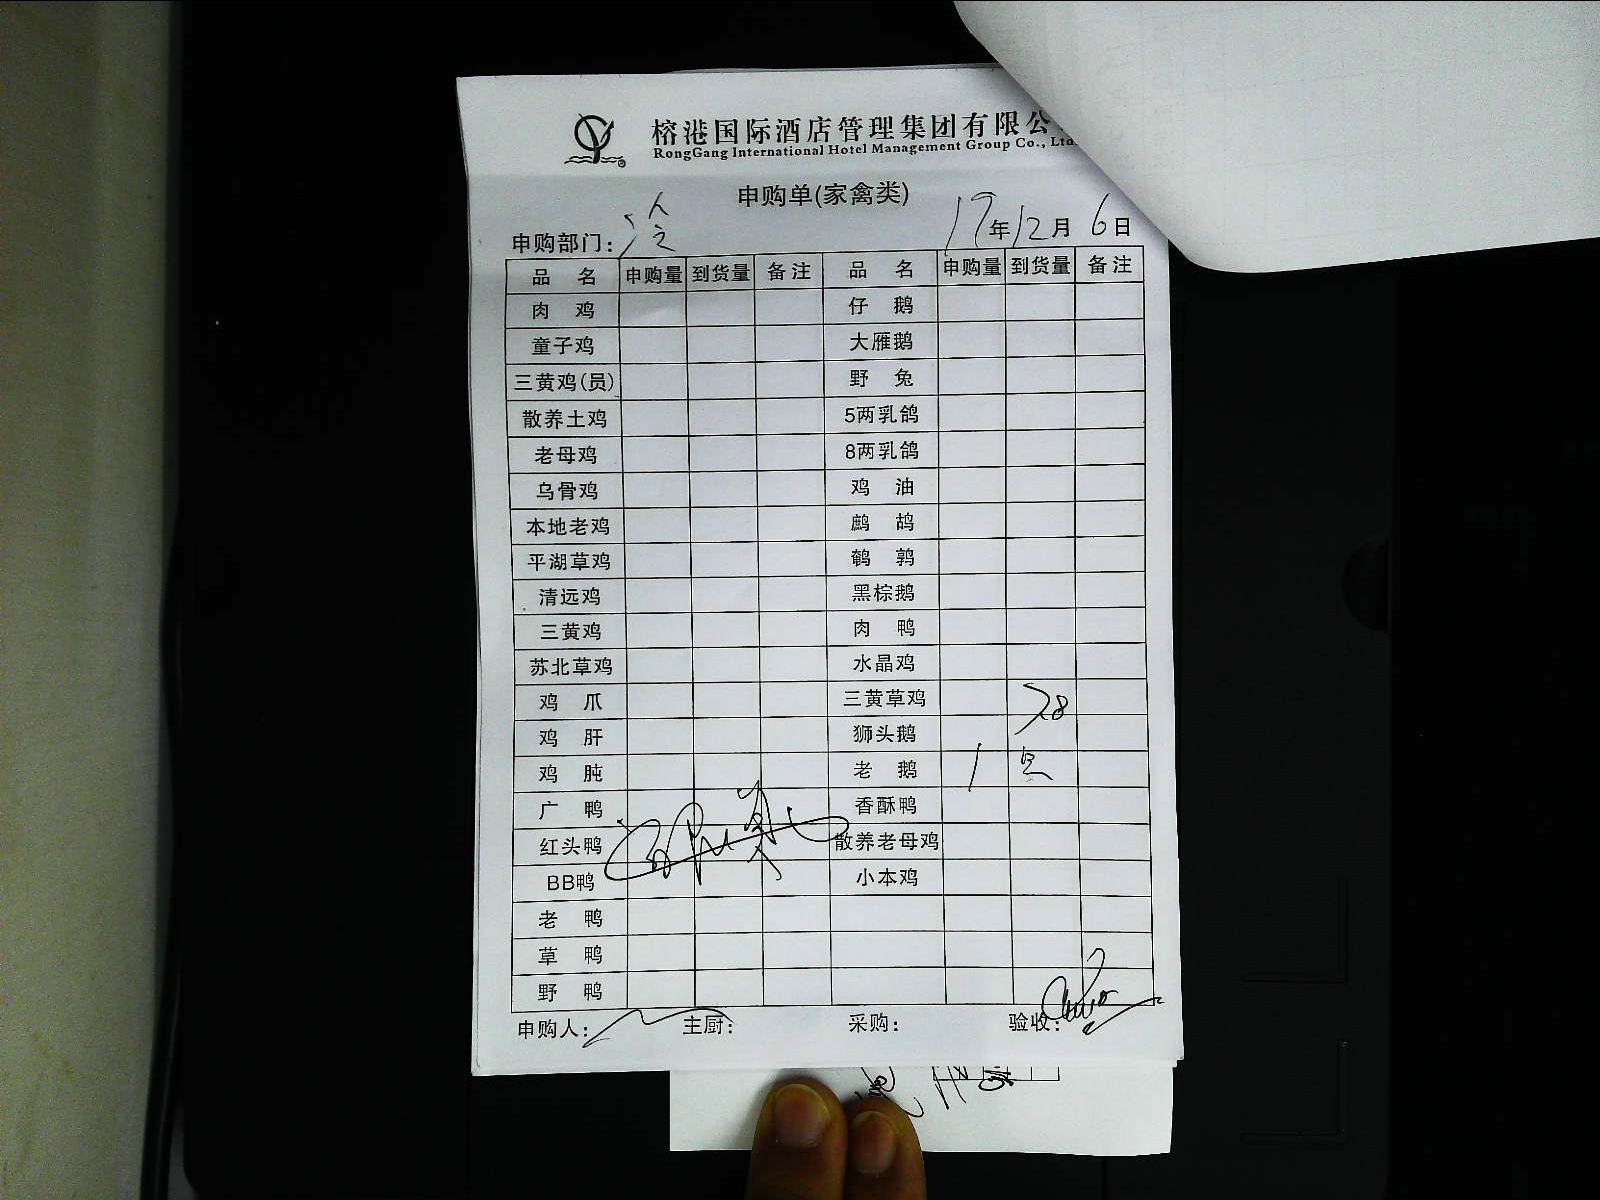 榕港国际酒店管理集团有限公
RongGang International Hotel Management Group Co., Ltd.
申购单(家禽类)
申购部门: 冷 17年12月6日
品 名 申购量 到货量 备注 品 名 申购量 到货量 备注
肉 鸡 仔 鹅
童子鸡 大雁鹅
三黄鸡(员) 野 兔
散养土鸡 5两乳鸽
老母鸡 8两乳鸽
乌骨鸡 鸡 油
本地老鸡 鹧 鸪
平湖草鸡 鹌 鹑
清远鸡 黑棕鹅
三黄鸡 肉 鸭
苏北草鸡 水晶鸡
鸡 爪 三黄草鸡
鸡 肝 狮头鹅
鸡 肫 老 鹅 1只
广 鸭 香酥鸭
红头鸭 散养老母鸡
BB鸭 小本鸡
老 鸭
草 鸭
野 鸭
申购人: 主厨: 采购: 验收: